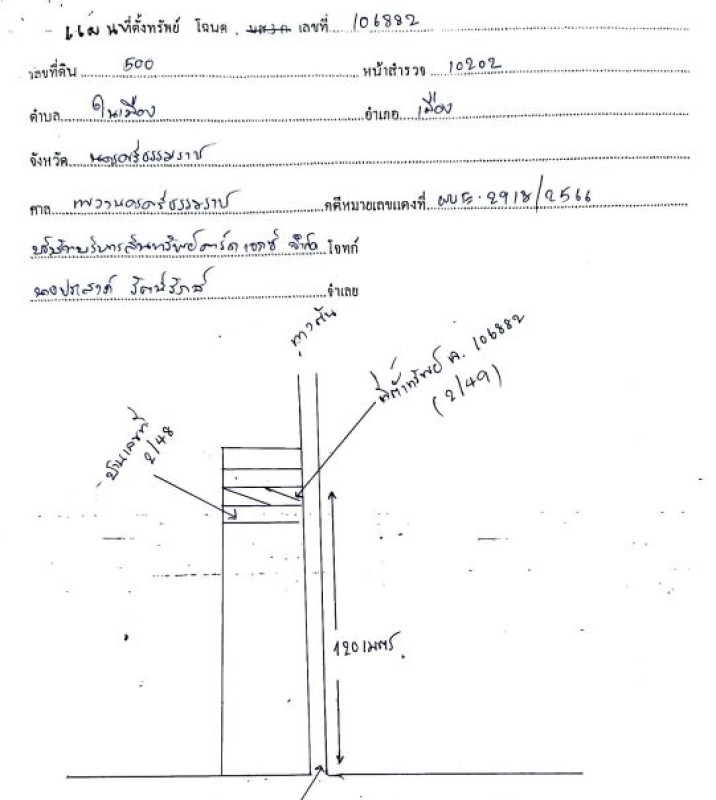 แผนที่ตั้งทรัพย์ โฉนด น.ส.3 ก เลขที่ 106882
เลขที่ดิน 500 หน้าสำรวจ 10202
ตำบล ในเมือง อำเภอ เมือง
จังหวัด นครศรีธรรมราช
ศาล แขวงนครศรีธรรมราช คดีหมายเลขแดงที่ ผบE.2918/2566
บริษัทบริหารสินทรัพย์ จำกัด โจทก์
จำเลย
ทางตัน
ที่ตั้งทรัพย์ ฉ. 106882
(2/49)
บ้านเลขที่
2/48
120 เมตร